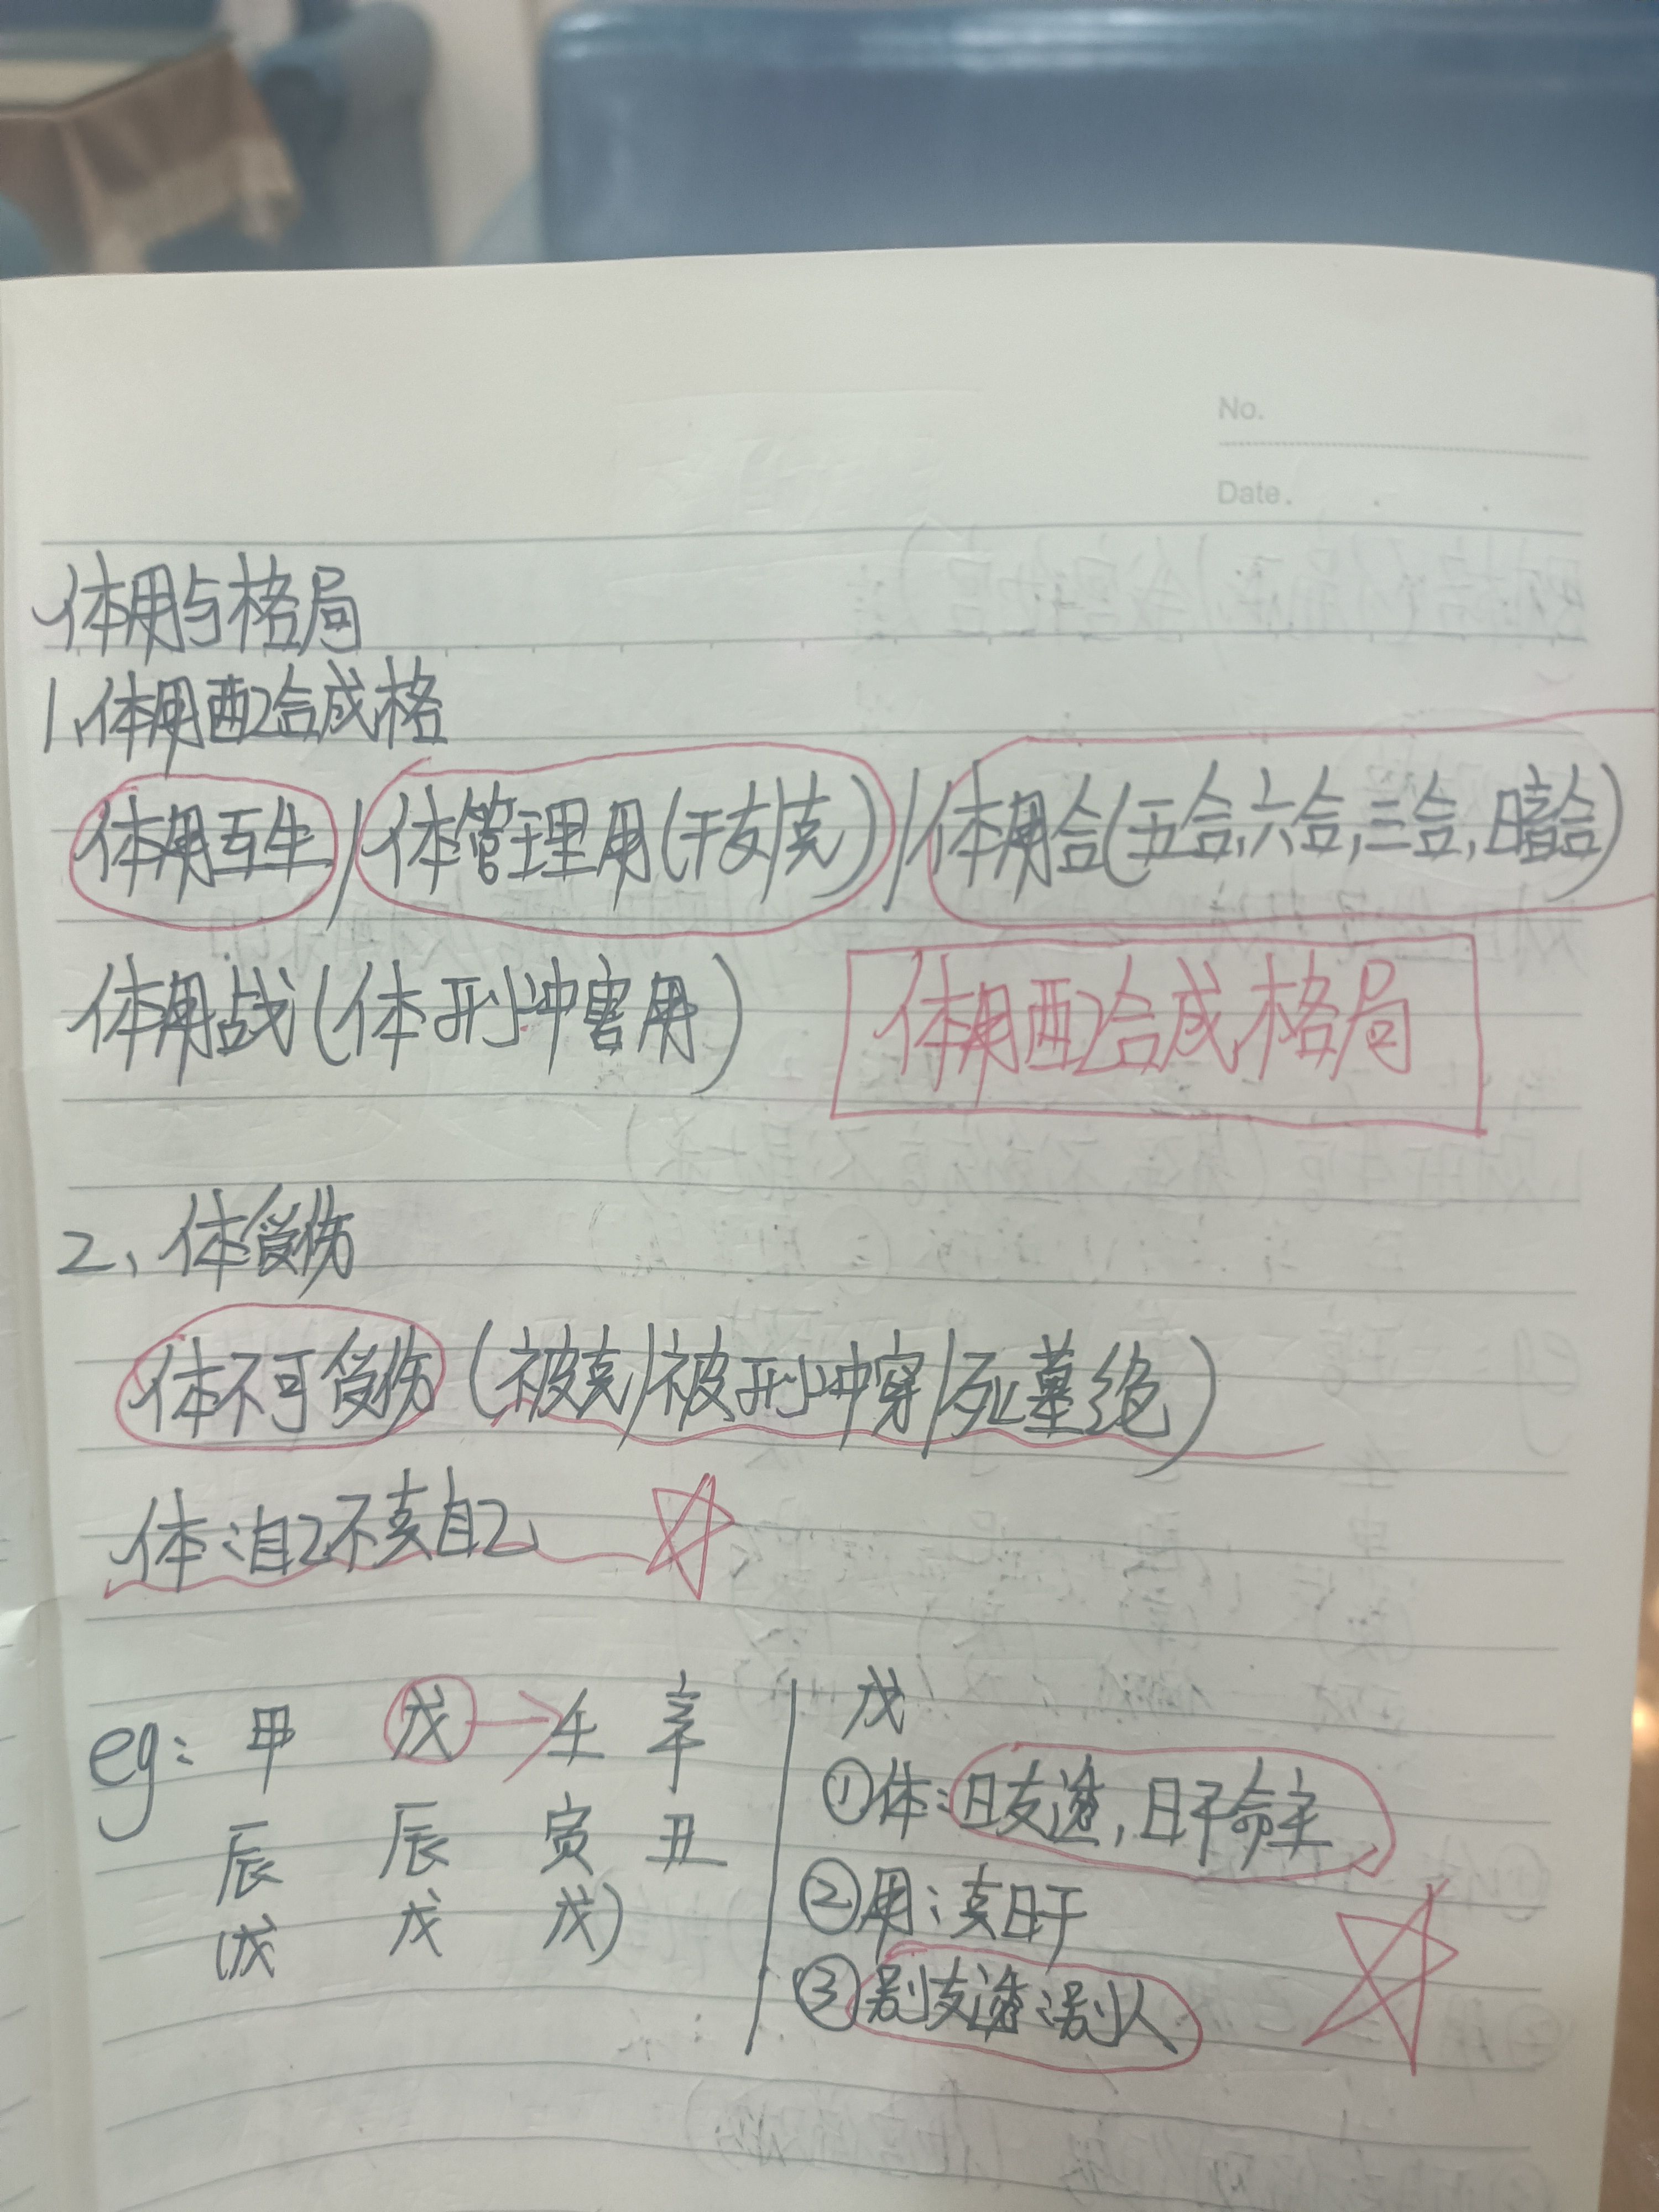 No.
Date.
体用与格局
1、体用配合成格
体用互生/体管理用(干支/克)/体用合(五合,六合,三合,暗合)
体用战(体刑冲害用)
体用配合成格局
2、体受伤
体不可受伤(被克/被刑冲穿/死墓绝)
体:自己不克自己
eg:甲 戊→壬 辛
辰 辰 寅 丑
(戊 戊 戊)
戊
①体:日支透,日干命主
②用:克日干
③别支透:别人